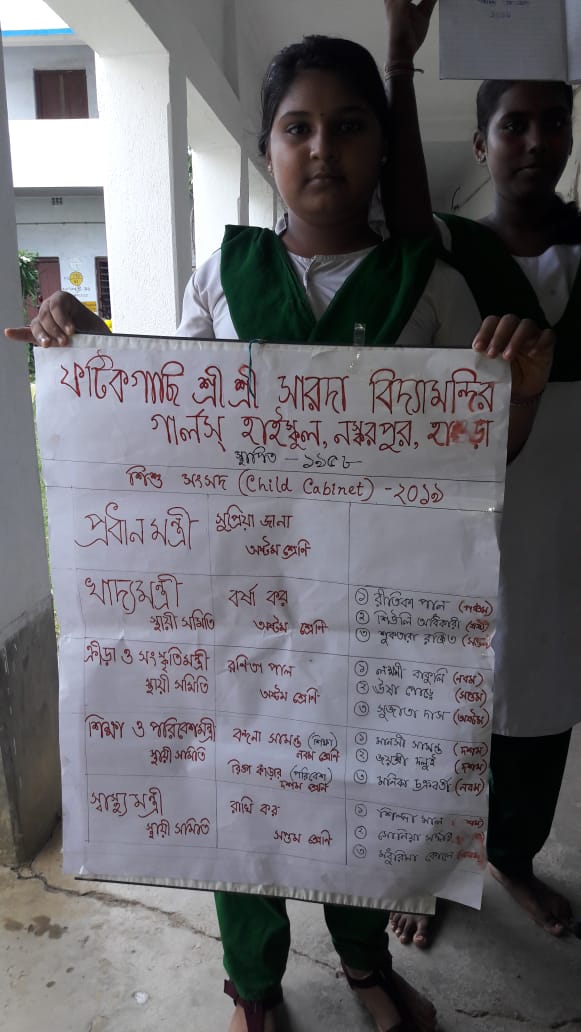 ফটিকগাছি শ্রীশ্রী সারদা বিদ্যামন্দির
গার্লস্ হাইস্কুল, নস্করপুর, হাওড়া
স্থাপিত - ১৯৫৮
শিশু সংসদ (Child Cabinet) - ২০১৯
প্রধান মন্ত্রী সুপ্রিয়া জানা
অষ্টম শ্রেণি
খাদ্যমন্ত্রী বর্ষা কর
স্থায়ী সমিতি অষ্টম শ্রেণি
① রীতিকা পাল
② শিউলি অধিকারী
③ শুকতারা রঞ্জিত
ক্রীড়া ও সংস্কৃতিমন্ত্রী রণিতা পাল
স্থায়ী সমিতি অষ্টম শ্রেণি
① লক্ষ্মী (নবম)
② ঊষা (সপ্তম)
③ সুজাতা দাস (অষ্টম)
শিক্ষা ও পরিবেশমন্ত্রী বন্দনা সামন্ত (শিক্ষা)
স্থায়ী সমিতি নবম শ্রেণি
রিম্পা কাঁড়ার (পরিবেশ)
দশম শ্রেণি
① মানসী সামন্ত (দশম)
② জয়শ্রী দলুই (দশম)
③ মনিকা চক্রবর্তী (নবম)
স্বাস্থ্য মন্ত্রী রাখি কর
স্থায়ী সমিতি সপ্তম শ্রেণি
① শিল্পা মাল
②
③ মধুরিমা কোলে